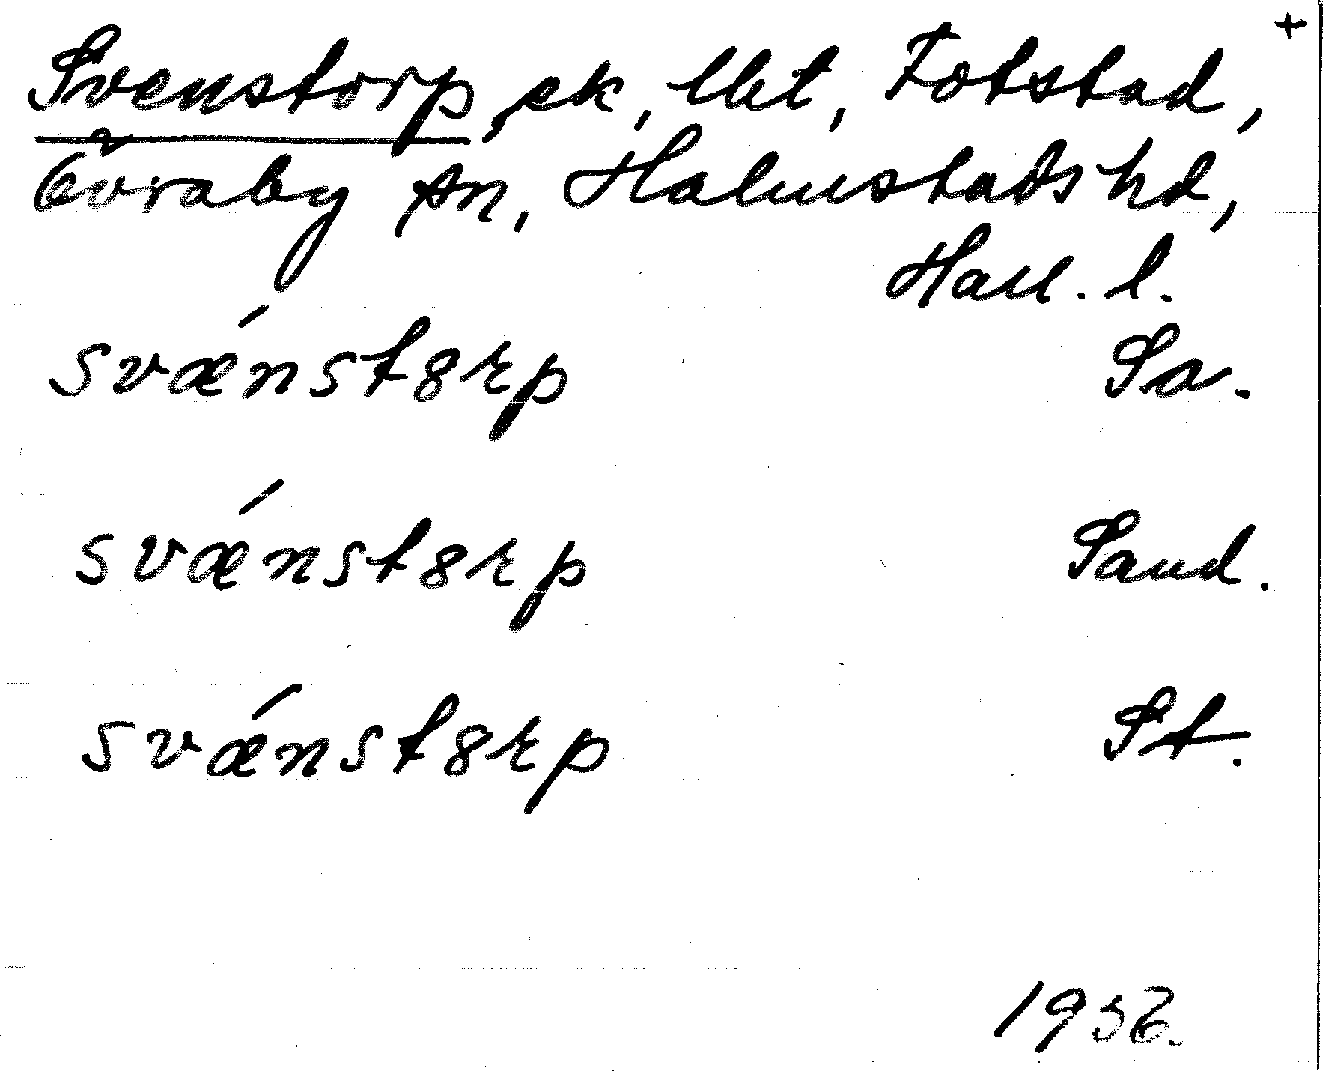 +
Svenstorp, ek, lht, Fotstad,
Övraby sn, Halmstads hd,
Hall. l.
svǽnstȣrp Sa.
svǽnstȣrp Sand.
svǽnstȣrp St.